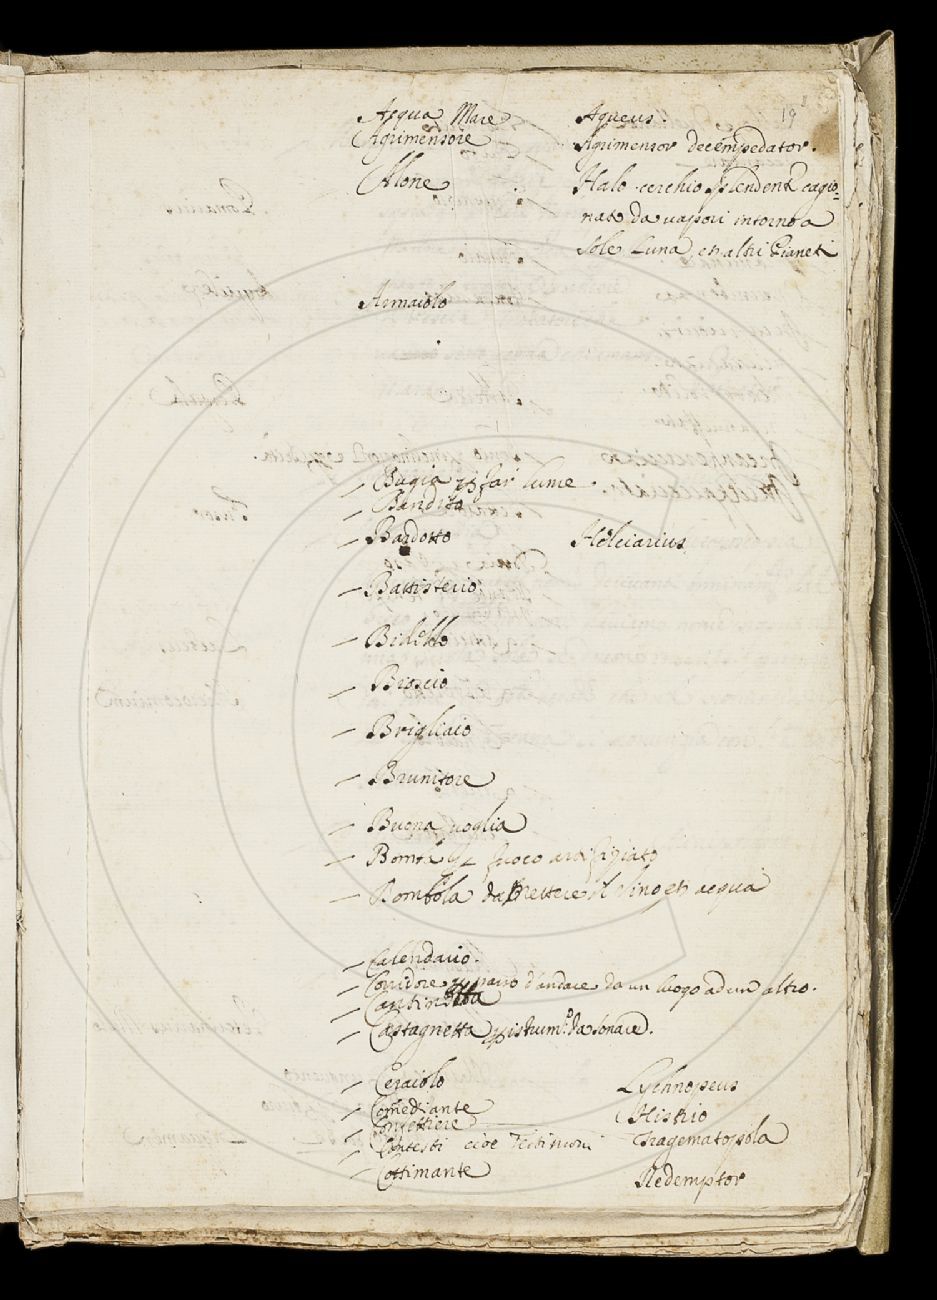 19
Acqua Mare Aqueus.
Agrimensore Agrimensor decempedator.
Alone Halo cerchio splendente cagio=
nato da vapori intorno a
Sole Luna, et altri Pianeti
Armaiolo
– Bugia p far lume.
– Bandita
– Bardotto Helciarius
– Battisterio
– Bidello
– Brigliaio
– Brunitore
– Buona voglia
– Bomba p fuoco artifiziato
– Bombola da mettere il vino et acqua
– Calendario.
– Corridore p passo d'andare da un luogo ad un altro.
– Castagnetta p istrum.o da sonare.
– Ceraiolo Lychnopeus
– Comediante Histrio
– Confettiere Tragematopola
– Contesti cioè Testimoni
– Cottimante Redemptor